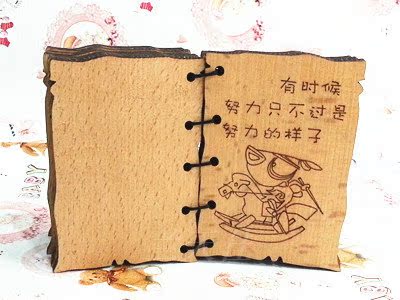 有时候
努力只不过是
努力的样子
BABY